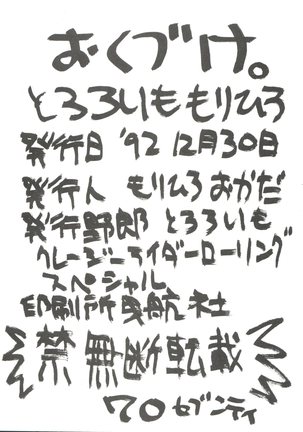 おくづけ。
とろろいももりひろ
発行日 '92 12月30日
発行人 もりひろおかだ
発行野郎 とろろいも
クレージーライダーローリング
スペシャル
印刷所曳航社
禁無断転載
70セブンティ